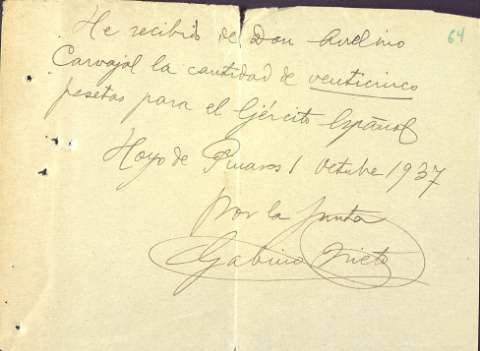 64
He recibido de Don Avelino
Carvajal la cantidad de venticinco
pesetas para el Ejército Español
Hoyo de Pinares 1 Octubre 1937
Por la Junta
Gabino Nieto